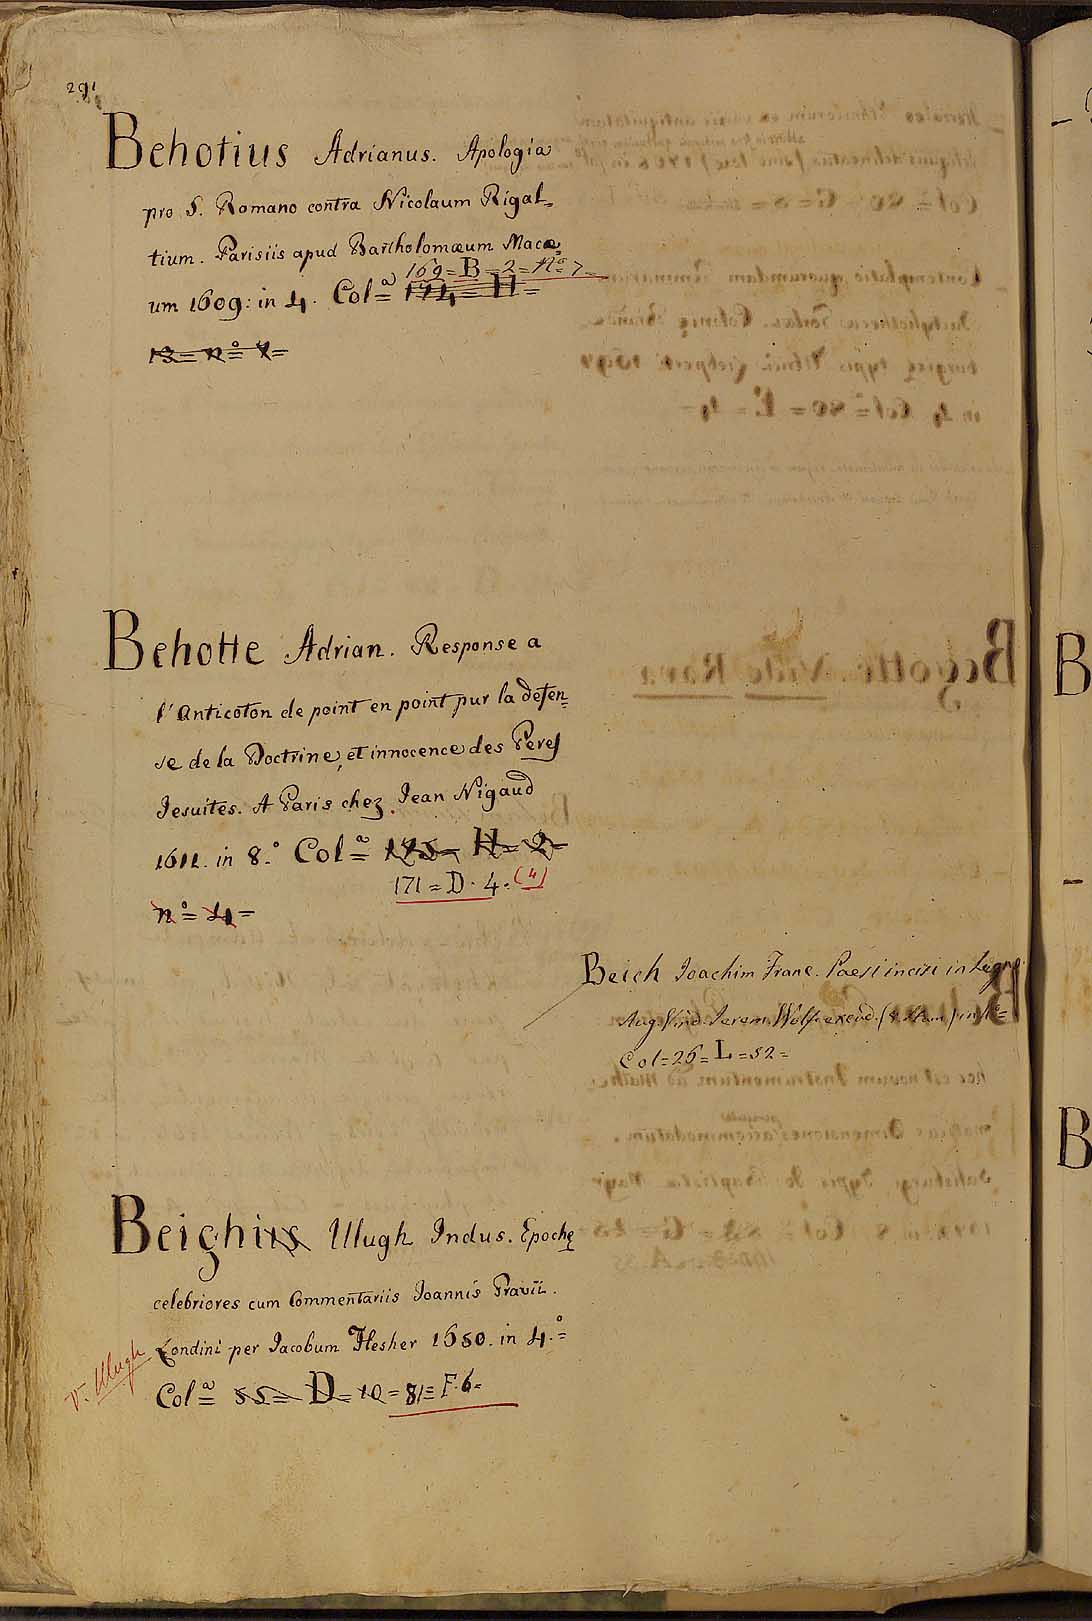 291
Behotius Adrianus. Apologia
pro S. Romano contra Nicolaum Rigal=
tium. Parisiis apud Bartholomæum Macæ=
169= B = 2= N.º 7
um 1609: in 4. Colª= 174= H=
13= nº= 7=
Behotte Adrian. Response a
l'Anticoton de point en point pur la defen=
se de la Doctrine, et innocence des Peres
Iesuites. A Paris chez Iean Nigaud
1611. in 8.º Colª= 175= H= 2=
171= D. 4. (4)
nº= 14=
Beich Ioachim Franc. Paesi incisi in Legno
Aug. Vind. Ierem. Wolf excud.
Col=26= L=52=
Beighius Ulugh Indus. Epochę
celebriores cum Commentariis Ioannis Gravii.
Londini per Iacobum Flesher 1650. in 4.º=
V. Ulugh
Colª= 55= D= 10= 81= F. 6=